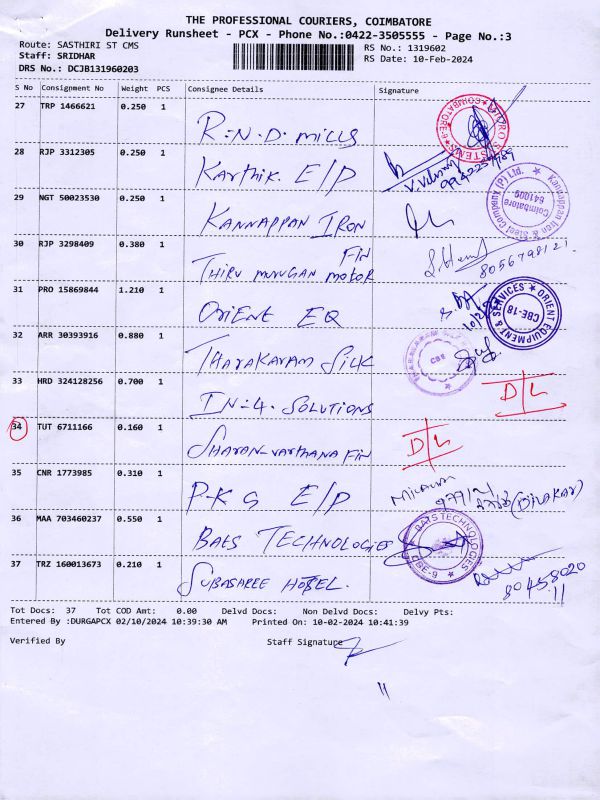 THE PROFESSIONAL COURIERS, COIMBATORE
Delivery Runsheet - PCX - Phone No.:0422-3505555 - Page No.:3
Route: SASTHIRI ST CMS
RS No.: 1319602
Staff: SRIDHAR
RS Date: 10-Feb-2024
DRS No.: DCJB131960203
S No Consignment No Weight PCS Consignee Details Signature
27 TRP 1466621 0.250 1 R=N.D. MILLS
28 RJP 3312305 0.250 1 Karthik. E/P
29 NGT 50023530 0.250 1 KANNAPPAN IRON
Kannappan Iron & Steel Company (P) Ltd. Coimbatore 641009
30 RJP 3298409 0.380 1 THIRU MURUGAN MOTOR FIN
8056798121
31 PRO 15869844 1.210 1 ORIENT EQ
ORIENT EQUIPMENT & SERVICES CBE-18
32 ARR 30393916 0.880 1 THARAKARAM SILK
CBE
33 HRD 324128256 0.700 1 IN=4. SOLUTIONS D/L
34 TUT 6711166 0.160 1 SHARAN-VARTHANA FIN D/L
35 CNR 1773985 0.310 1 P-K G E/P
(DIVAKAR)
36 MAA 703460237 0.550 1 BATS TECHNOLOGIES
BATS TECHNOLOGIES CBE-9
37 TRZ 160013673 0.210 1 SUBASREE HOTEL.
Tot Docs: 37 Tot COD Amt: 0.00 Delvd Docs: Non Delvd Docs: Delvy Pts:
Entered By :DURGAPCX 02/10/2024 10:39:30 AM Printed On: 10-02-2024 10:41:39
Verified By Staff Signature